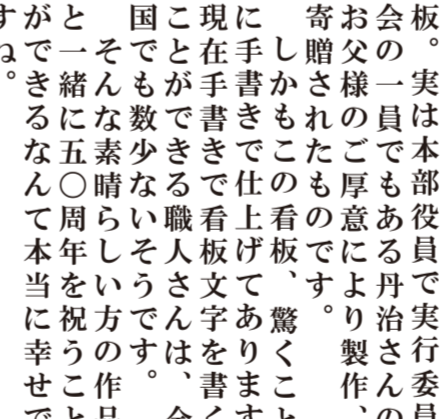 板。実は本部役員で実行委員
会の一員でもある丹治さんの
お父様のご厚意により製作、
寄贈されたものです。
しかもこの看板、驚くこと
に手書きで仕上げてあります
現在手書きで看板文字を書く
ことができる職人さんは、全
国でも数少ないそうです。
そんな素晴らしい方の作品
と一緒に五〇周年を祝うこと
ができるなんて本当に幸せで
すね。